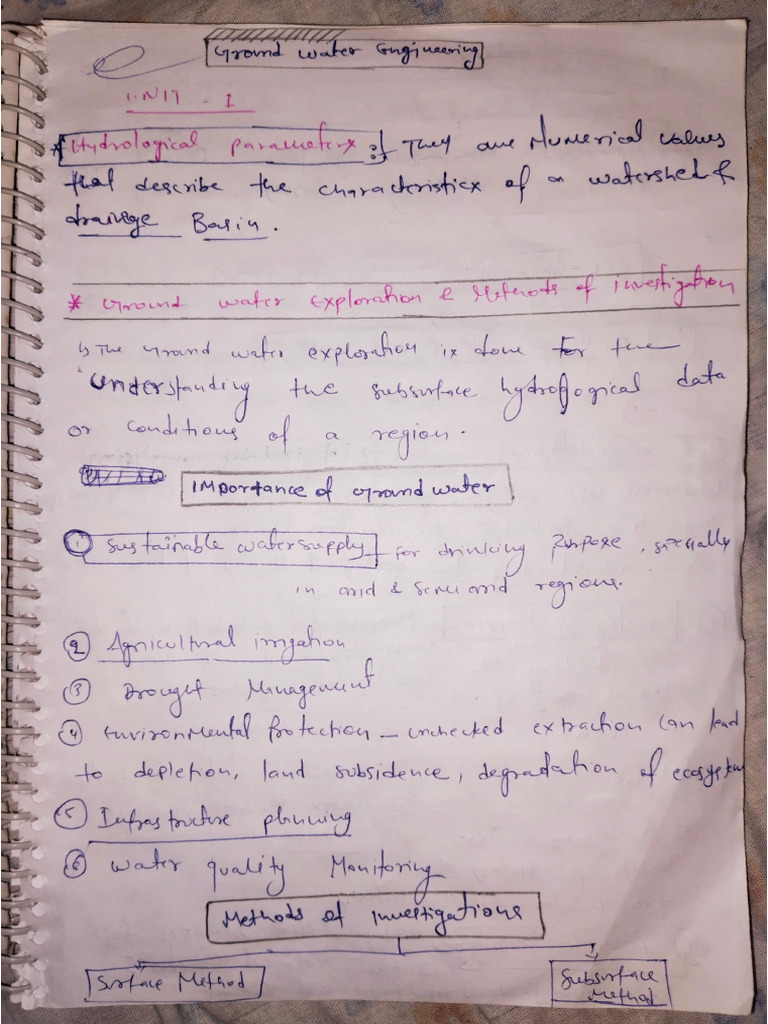 Ground Water Engineering
UNIT - I
* Hydrological parameters :- They are Numerical values
that describe the characteristics of a watershed &
drainage Basin.
* Ground water exploration & Methods of investigation
1) The Ground water exploration is done for the
understanding the subsurface hydrological data
or conditions of a region.
Importance of Ground water
① Sustainable water supply - for drinking Purpose, specially
in arid & semi arid regions.
② Agricultural irrigation
③ Drought Management
④ Environmental Protection - unchecked extraction can lead
to depletion, land subsidence, degradation of ecosystem
⑤ Infrastructure planning
⑥ Water quality Monitoring
Methods of Investigations
Surface Method
Subsurface
Method